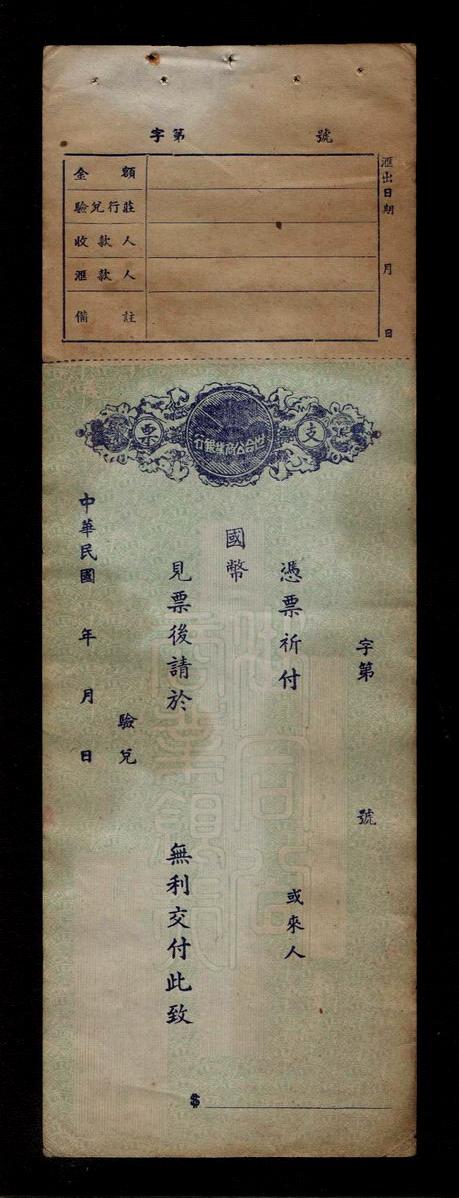 字第 號
滙出日期 月 日
金額
驗兌行莊
收款人
滙款人
備註
支票
世合公商業銀行
字第 號
憑票祈付 或來人
國幣
見票後請於 無利交付此致
驗兌
中華民國 年 月 日
$